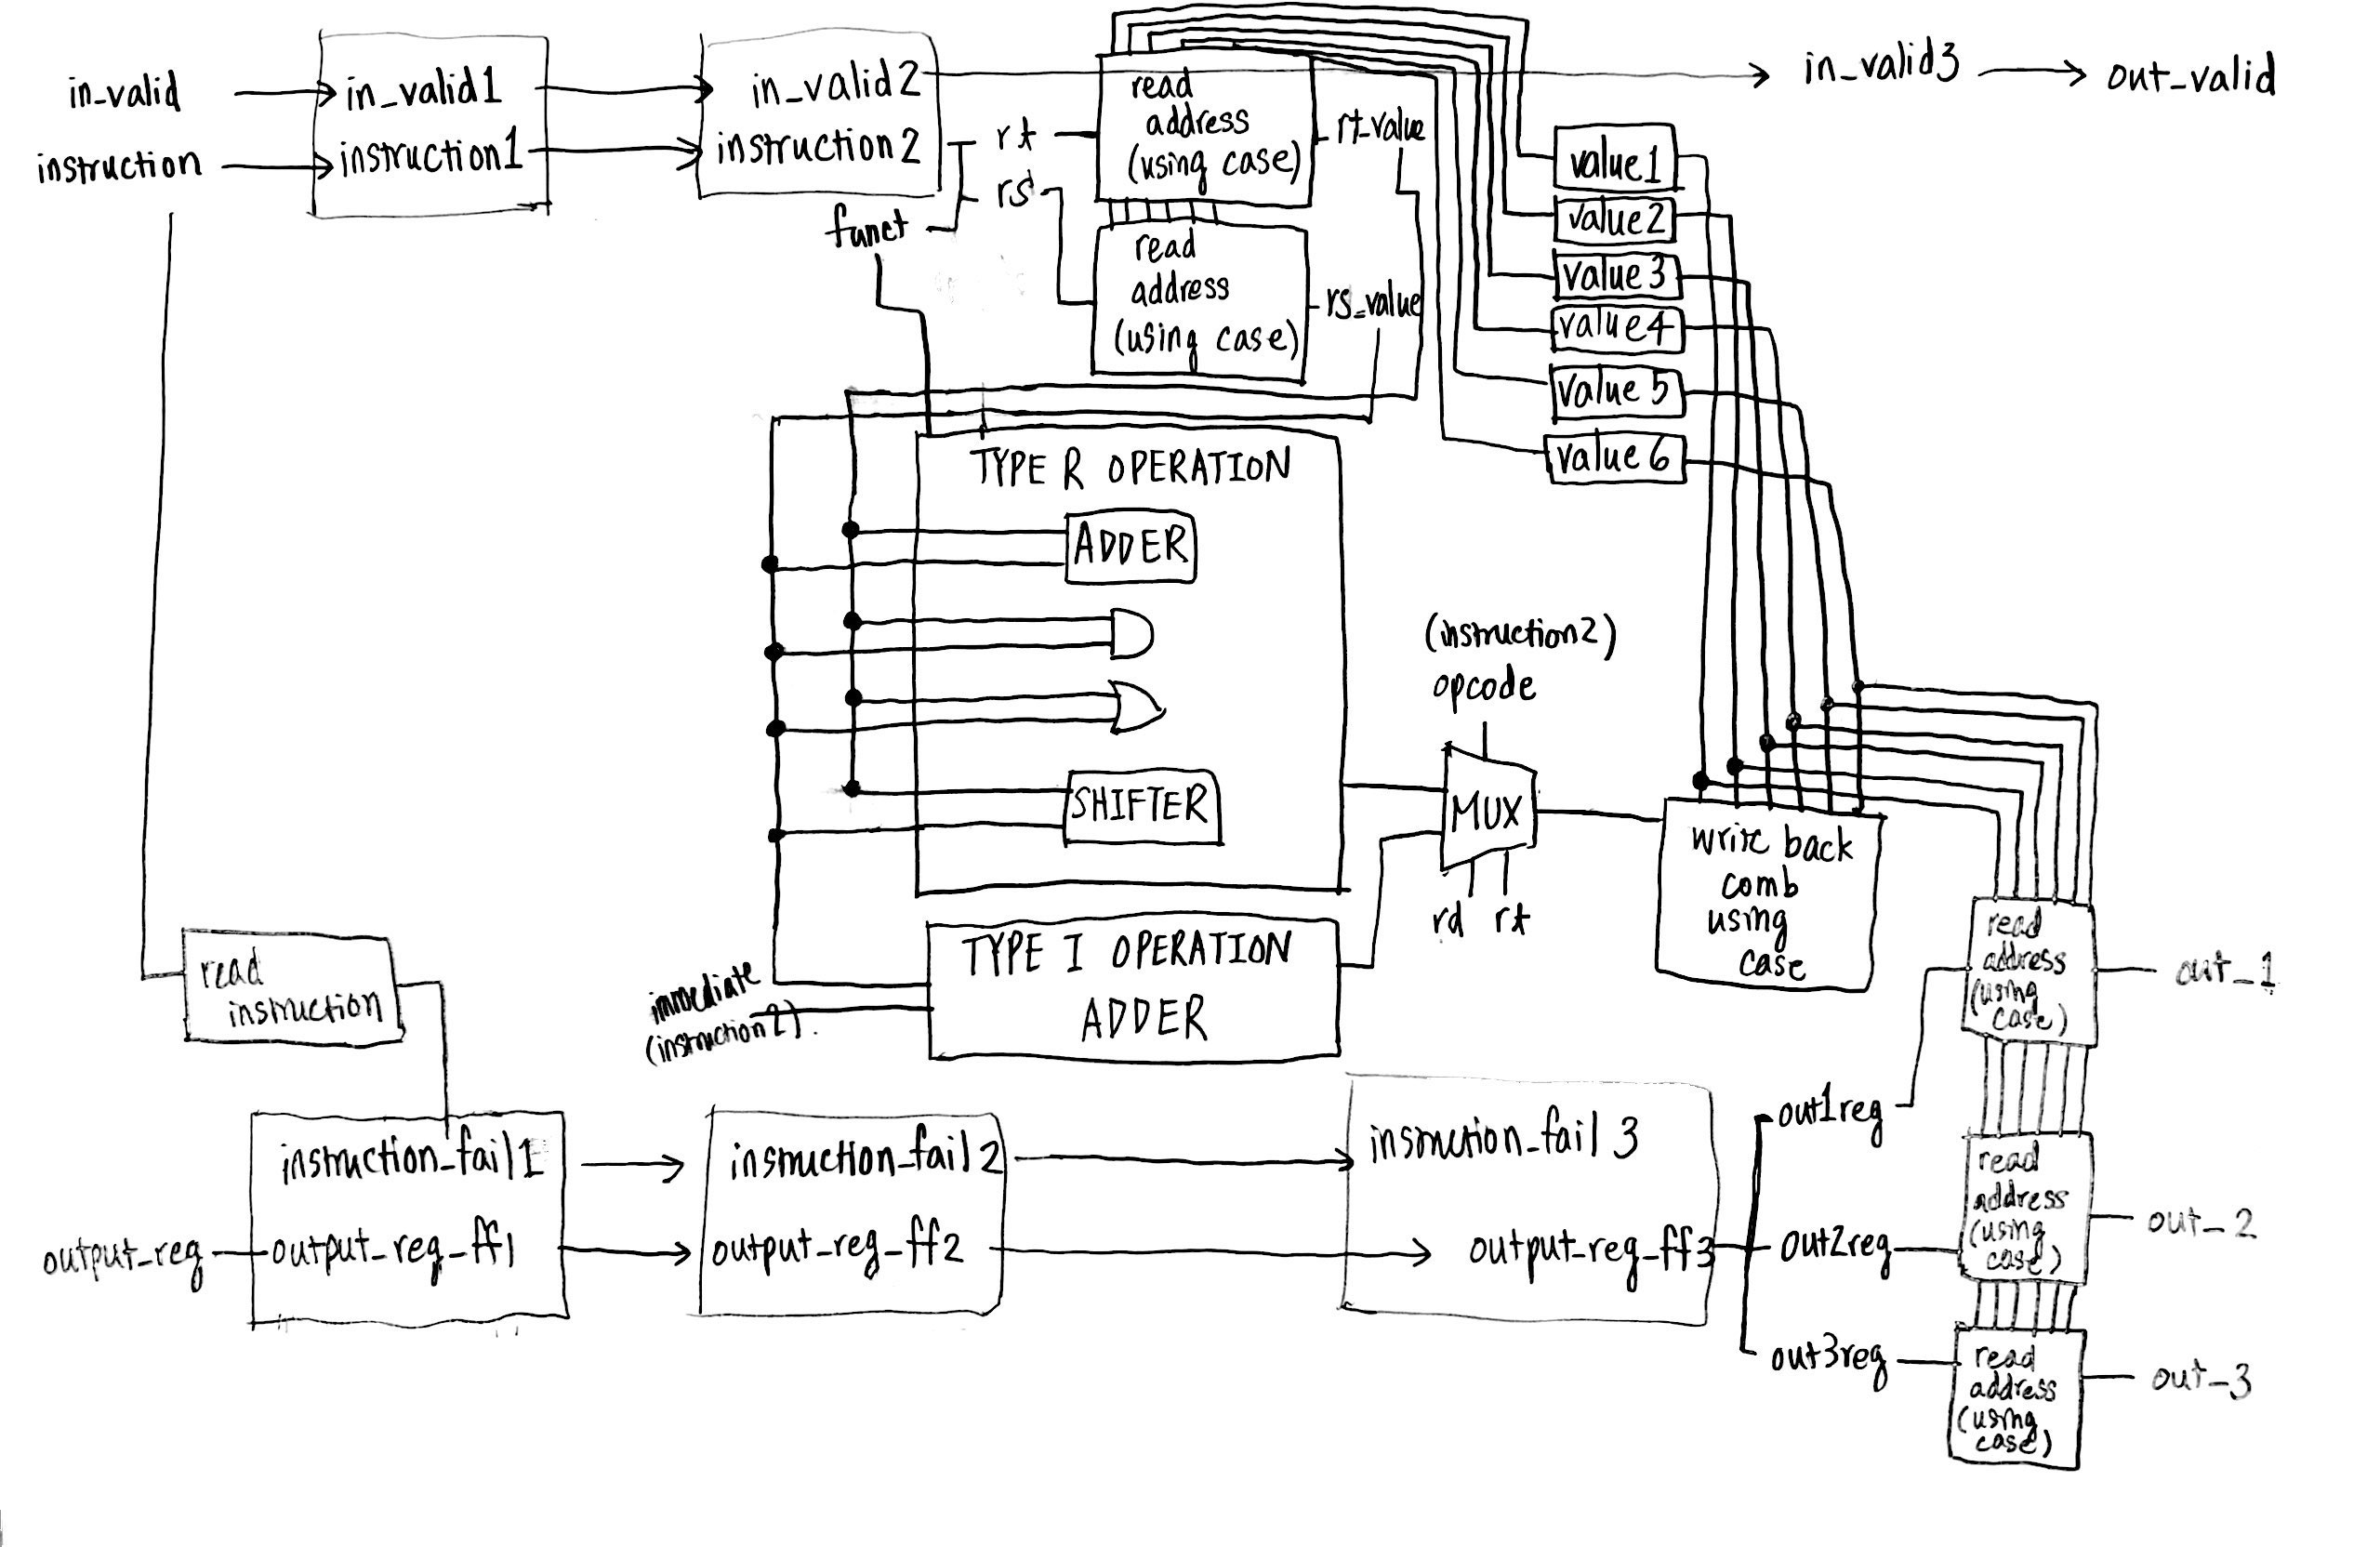 in_valid
instruction
in_valid1
instruction1
in_valid2
instruction2
rt
rs
funct
read
address
(using case)
rt_value
read
address
(using case)
rs_value
in_valid3
out_valid
value1
value2
value3
value4
value5
value6
TYPE R OPERATION
ADDER
SHIFTER
(instruction2)
opcode
MUX
rd rt
write back
comb
using
case
TYPE I OPERATION
ADDER
immediate
(instruction2).
read
instruction
instruction_fail1
output_reg
output_reg_ff1
instruction_fail2
output_reg_ff2
instruction_fail 3
output_reg_ff3
out1reg
out2reg
out3reg
read
address
(using
case)
out_1
read
address
(using
case)
out_2
read
address
(using
case)
out_3